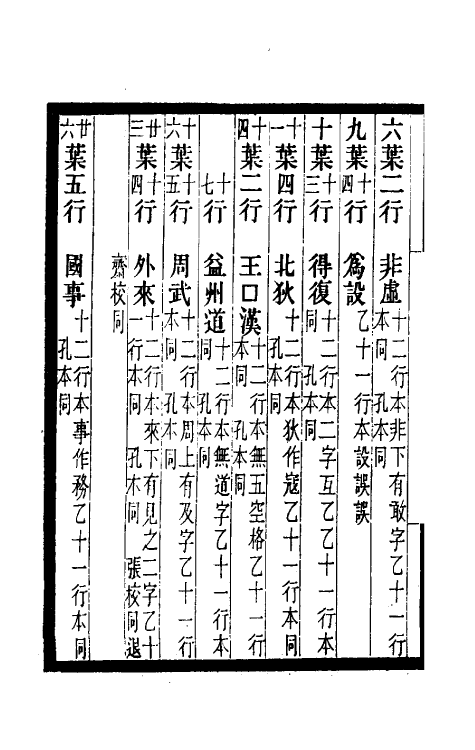 六葉二行 非虛 十二行本非下有敢字乙十一行本同 孔本同
九葉十四行 爲設 乙十一行本設誤誤
十葉十三行 得復 十二行本二字互乙乙十一行本同 孔本同
十一葉四行 北狄 十二行本狄作寇乙十一行本同 孔本同
十四葉二行 王口漢 十二行本無五空格乙十一行本同 孔本同
十七行 益州道 十二行本無道字乙十一行本同 孔本同
十六葉十五行 周武 十二行本周上有及字乙十一行本同 孔本同
廿三葉十四行 外來 十二行本來下有見之二字乙十一行本同 孔本同 張校同退
齋校同
廿六葉五行 國事 十二行本事作務乙十一行本同 孔本同